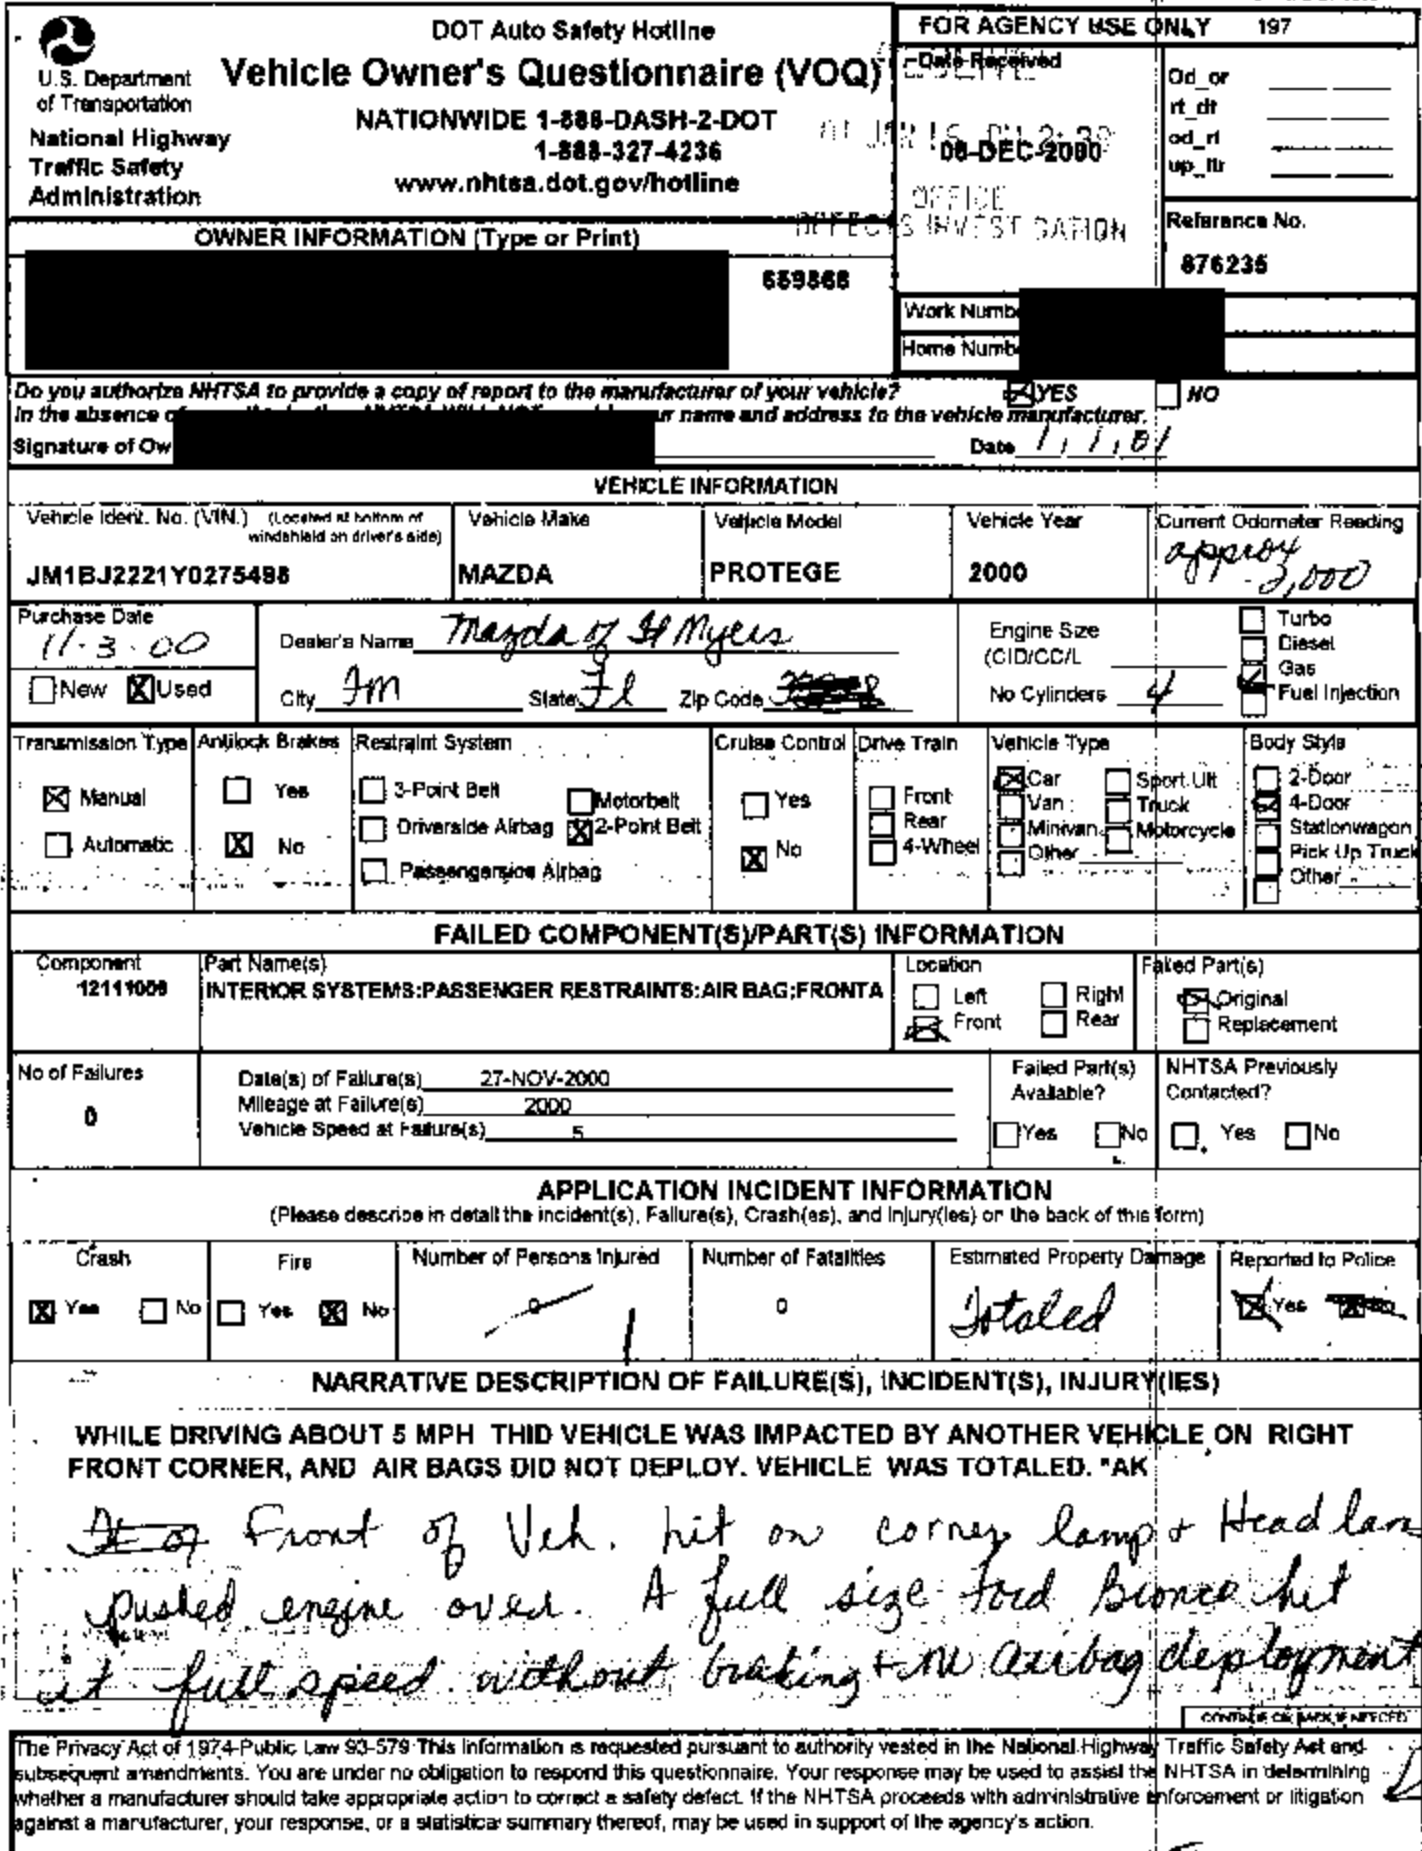 DOT Auto Safety Hotline
Vehicle Owner's Questionnaire (VOQ)
NATIONWIDE 1-888-DASH-2-DOT
1-888-327-4236
www.nhtsa.dot.gov/hotline
U.S. Department
of Transportation
National Highway
Traffic Safety
Administration
FOR AGENCY USE ONLY 197
Date Received
08-DEC-2000
OFFICE
DEFECTS INVESTIGATION
Od_or
rt_dt
od_rl
up_ltr
Reference No.
876235
OWNER INFORMATION (Type or Print)
Work Numb
Home Numb
Do you authorize NHTSA to provide a copy of report to the manufacturer of your vehicle? YES NO
In the absence of ur name and address to the vehicle manufacturer.
Signature of Ow Date 1, 1, 01
VEHICLE INFORMATION
Vehicle Ident. No. (VIN.) (Located at bottom of windshield on driver's side)
JM1BJ2221Y0275498
Vehicle Make
MAZDA
Vehicle Model
PROTEGE
Vehicle Year
2000
Current Odometer Reading
approx
2,000
Purchase Date
11-3-00
New Used
Dealer's Name Mazda of Ft Myers
City Fm State Fl Zip Code
Engine Size
(CID/CC/L
No Cylinders 4
Turbo
Diesel
Gas
Fuel Injection
Transmission Type
Manual
Automatic
Antilock Brakes
Yes
No
Restraint System
3-Point Belt
Driverside Airbag
Passengerside Airbag
Motorbelt
2-Point Belt
Cruise Control
Yes
No
Drive Train
Front
Rear
4-Wheel
Vehicle Type
Car
Van
Minivan
Other
Sport Ult
Truck
Motorcycle
Body Style
2-Door
4-Door
Stationwagon
Pick Up Truck
Other
FAILED COMPONENT(S)/PART(S) INFORMATION
Component
Part Name(s)
INTERIOR SYSTEMS:PASSENGER RESTRAINTS:AIR BAG:FRONTA
Location
Left Right
Front Rear
Failed Part(s)
Original
Replacement
No of Failures
0
Date(s) of Failure(s) 27-NOV-2000
Mileage at Failure(s) 2000
Vehicle Speed at Failure(s) 5
Failed Part(s)
Available?
Yes No
NHTSA Previously
Contacted?
Yes No
APPLICATION INCIDENT INFORMATION
(Please describe in detail the incident(s), Failure(s), Crash(es), and Injury(ies) on the back of this form)
Crash
Yes No
Fire
Yes No
Number of Persons Injured
0 1
Number of Fatalities
0
Estimated Property Damage
Totaled
Reported to Police
Yes No
NARRATIVE DESCRIPTION OF FAILURE(S), INCIDENT(S), INJURY(IES)
WHILE DRIVING ABOUT 5 MPH THID VEHICLE WAS IMPACTED BY ANOTHER VEHICLE ON RIGHT
FRONT CORNER, AND AIR BAGS DID NOT DEPLOY. VEHICLE WAS TOTALED. *AK
Front of Veh. hit on corner lamp + Head lam
pushed engine over. A full size Ford Bronco hit
it full speed without braking + no airbag deployment
CONTINUE ON BACK IF NEEDED
The Privacy Act of 1974-Public Law 93-579 This information is requested pursuant to authority vested in the National Highway Traffic Safety Act and
subsequent amendments. You are under no obligation to respond this questionnaire. Your response may be used to assist the NHTSA in determining
whether a manufacturer should take appropriate action to correct a safety defect. If the NHTSA proceeds with administrative enforcement or litigation
against a manufacturer, your response, or a statistical summary thereof, may be used in support of the agency's action.